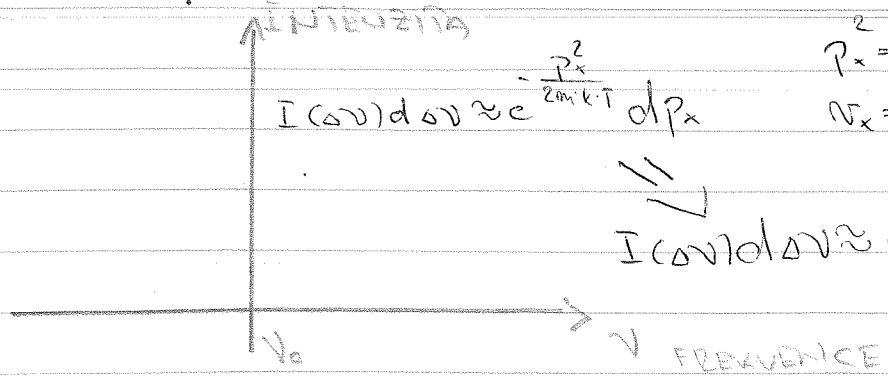 INTENZITA
p_x^2 =
I(Δν)dΔν ≈ e^{-\frac{p_x^2}{2m·k·T}} dp_x
v_x =
I(Δν)dΔν ≈
ν_0
ν FREKVENCE